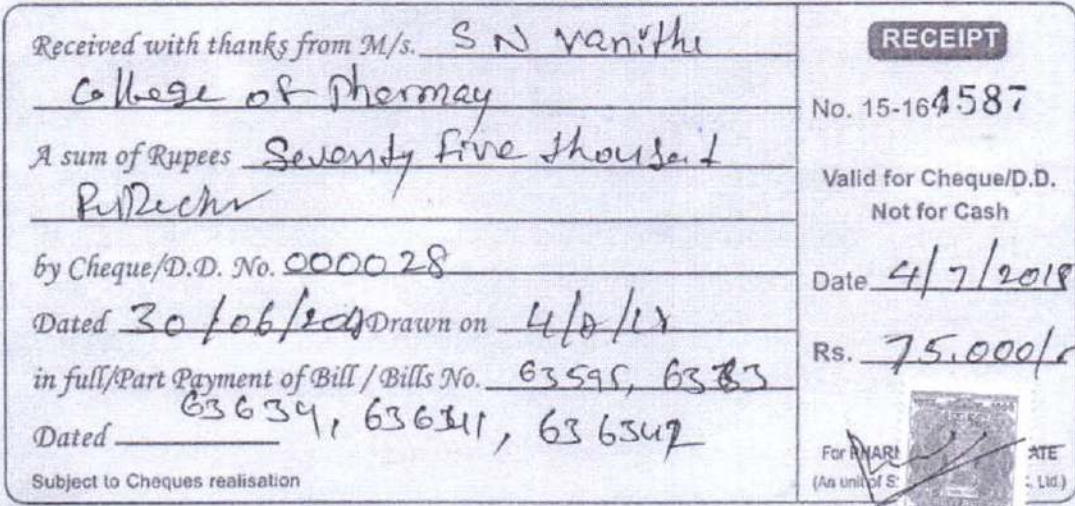 Received with thanks from M/s. S N Vanithe
College of Phermay
A sum of Rupees Seventy five thousand
by Cheque/D.D. No. 000028
Dated 30/06/20 Drawn on 4/8/18
in full/Part Payment of Bill / Bills No. 63595, 63383
63639,
Dated
Subject to Cheques realisation
RECEIPT
No. 15-16 4587
Valid for Cheque/D.D.
Not for Cash
Date 4/7/2018
Rs. 75.000/-
For PHAR ATE
(An unit of S Ltd.)